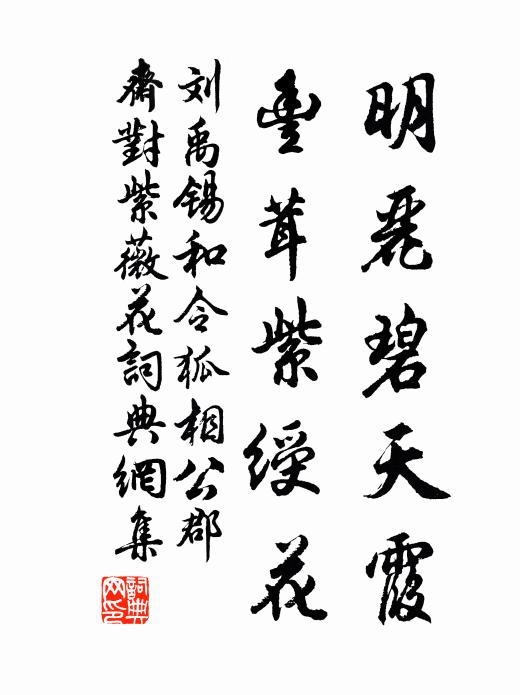 明麗碧天霞
豐茸紫綬花
刘禹锡和令狐相公郡
齋對紫薇花詞典網集
詞典
网印